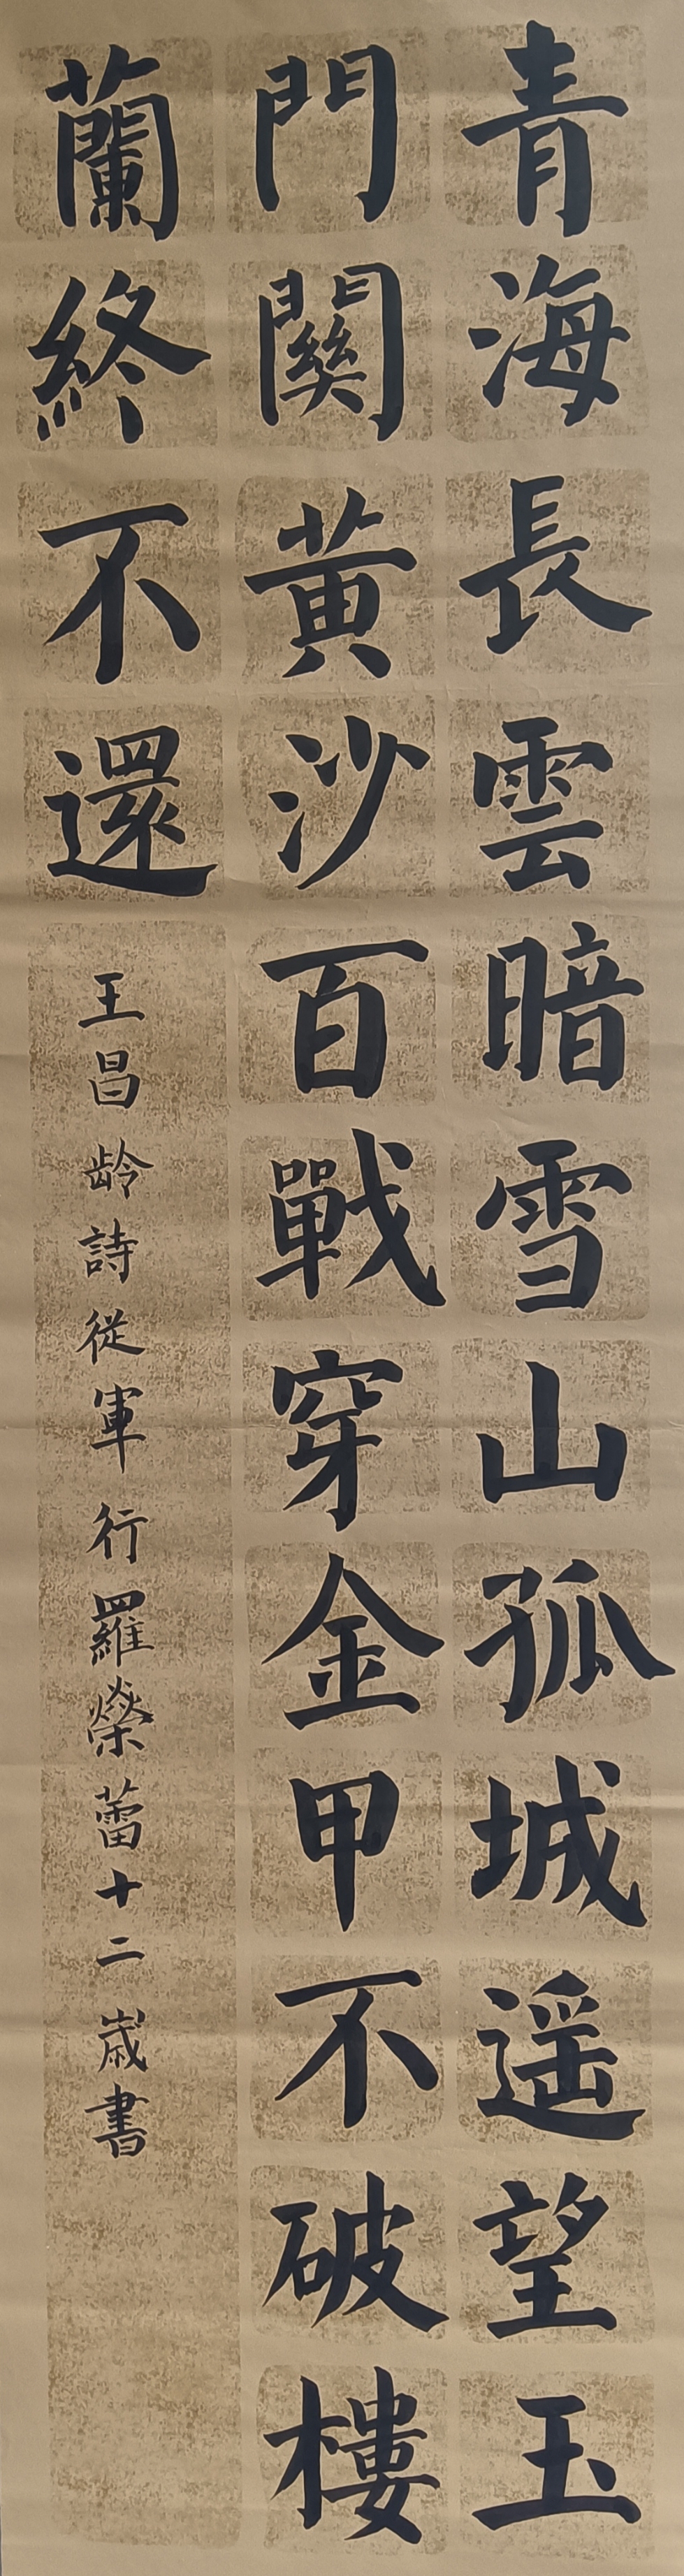 青海長雲暗雪山孤城遥望玉
門關黄沙百戰穿金甲不破樓
蘭終不還
王昌龄詩從軍行羅榮蕾十二歲書